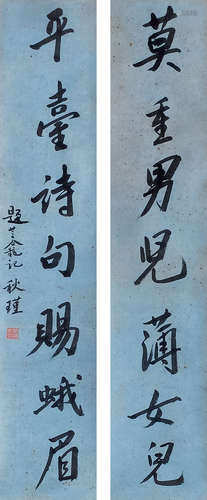 莫重男兒薄女兒
平臺詩句賜蛾眉
題芝龕記 秋瑾